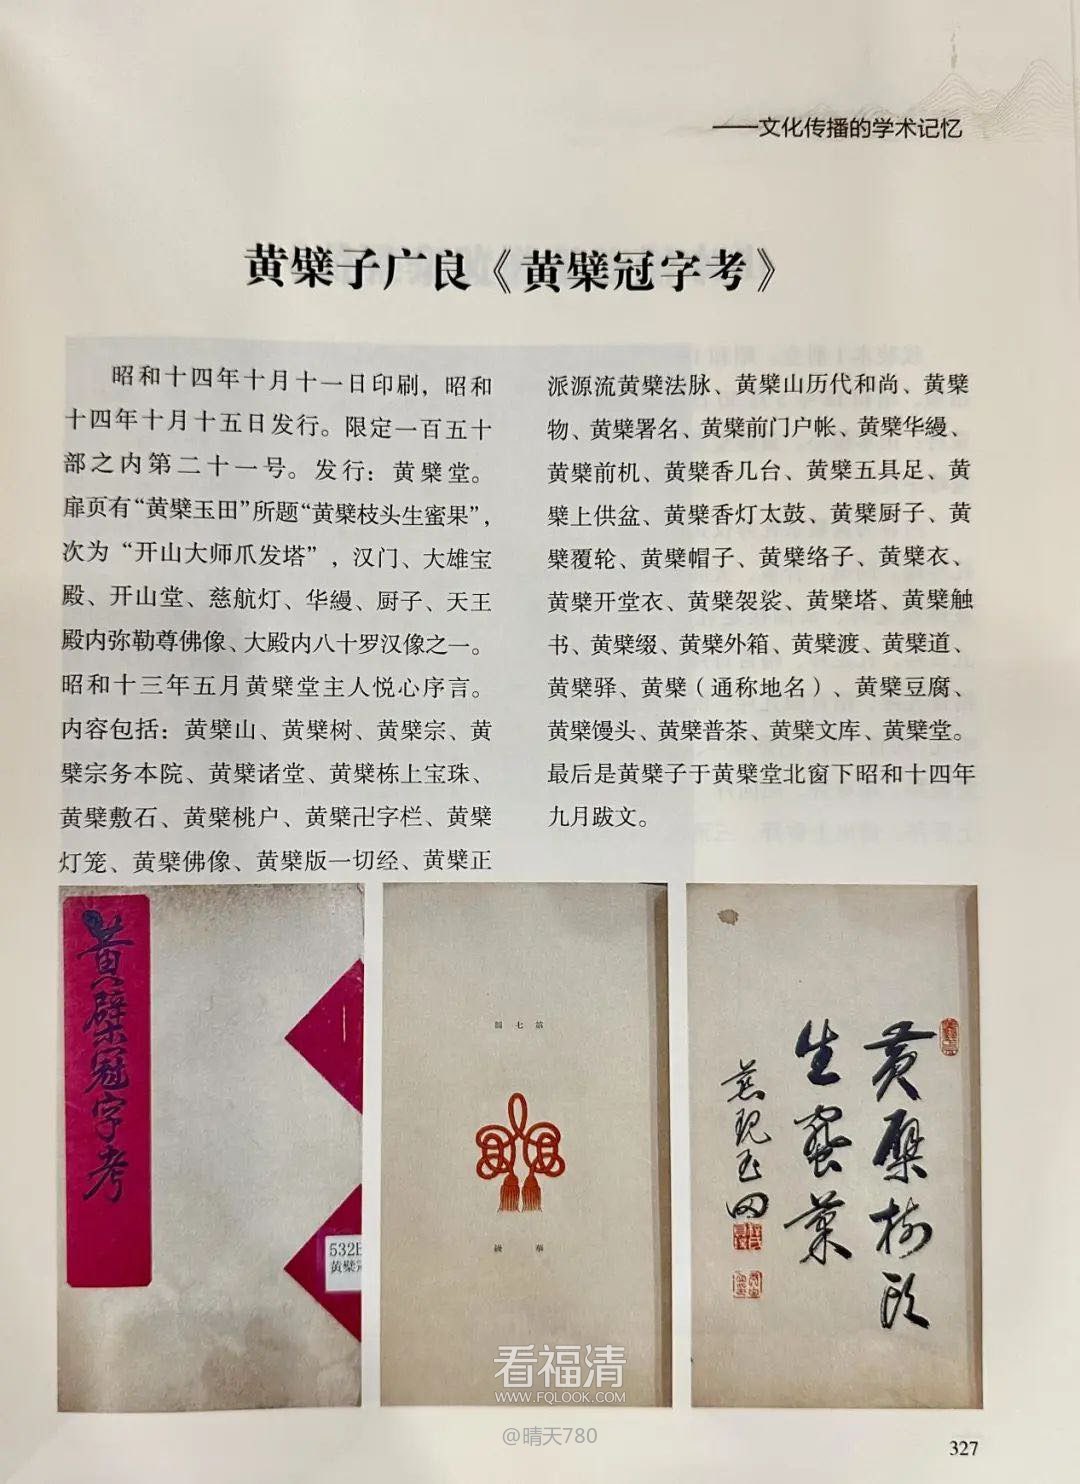 ——文化传播的学术记忆
黄檗子广良《黄檗冠字考》
昭和十四年十月十一日印刷，昭和
十四年十月十五日发行。限定一百五十
部之内第二十一号。发行：黄檗堂。
扉页有“黄檗玉田”所题“黄檗枝头生蜜果”，
次为“开山大师爪发塔”，汉门、大雄宝
殿、开山堂、慈航灯、华缦、厨子、天王
殿内弥勒尊佛像、大殿内八十罗汉像之一。
昭和十三年五月黄檗堂主人悦心序言。
内容包括：黄檗山、黄檗树、黄檗宗、黄
檗宗务本院、黄檗诸堂、黄檗栋上宝珠、
黄檗敷石、黄檗桃户、黄檗卍字栏、黄檗
灯笼、黄檗佛像、黄檗版一切经、黄檗正
派源流黄檗法脉、黄檗山历代和尚、黄檗
物、黄檗署名、黄檗前门户帐、黄檗华缦、
黄檗前机、黄檗香几台、黄檗五具足、黄
檗上供盆、黄檗香灯太鼓、黄檗厨子、黄
檗覆轮、黄檗帽子、黄檗络子、黄檗衣、
黄檗开堂衣、黄檗袈裟、黄檗塔、黄檗触
书、黄檗缀、黄檗外箱、黄檗渡、黄檗道、
黄檗驿、黄檗（通称地名）、黄檗豆腐、
黄檗馒头、黄檗普茶、黄檗文库、黄檗堂。
最后是黄檗子于黄檗堂北窗下昭和十四年
九月跋文。
黄檗冠字考
532
黄檗冠
黄檗树头
生蜜菓
玉田
看福清
WWW.FQLOOK.COM
@晴天780
327